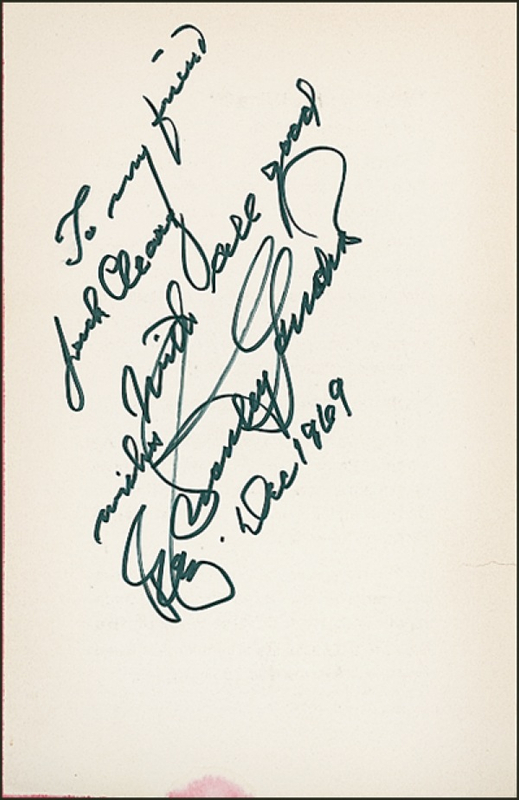 To my friend
Jack Cleary
With all good
wishes
Stanley
Dec 1969